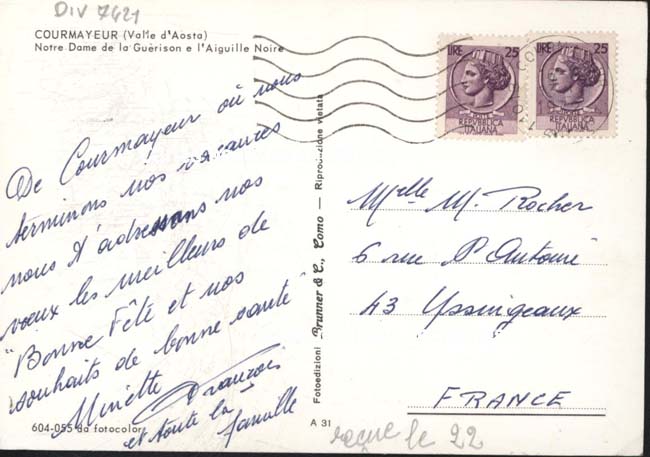 DIV 7421
COURMAYEUR (Valle d'Aosta)
Notre Dame de la Guérison e l'Aiguille Noire
De Courmayeur où nous
terminons nos vacances
nous t'adressons nos
vœux les meilleurs de
"Bonne Fête et nos
souhaits de bonne santé"
Minette François
et toute la
famille
604-055 da fotocolor
Fotoedizioni Brunner & C., Como — Riproduzione vietata
A 31
LIRE 25
REPVBBLICA
ITALIANA
LIRE 25
REPVBBLICA
ITALIANA
Melle M. Rocher
6 rue St Antoine
43 Yssingeaux
FRANCE
reçue le 22